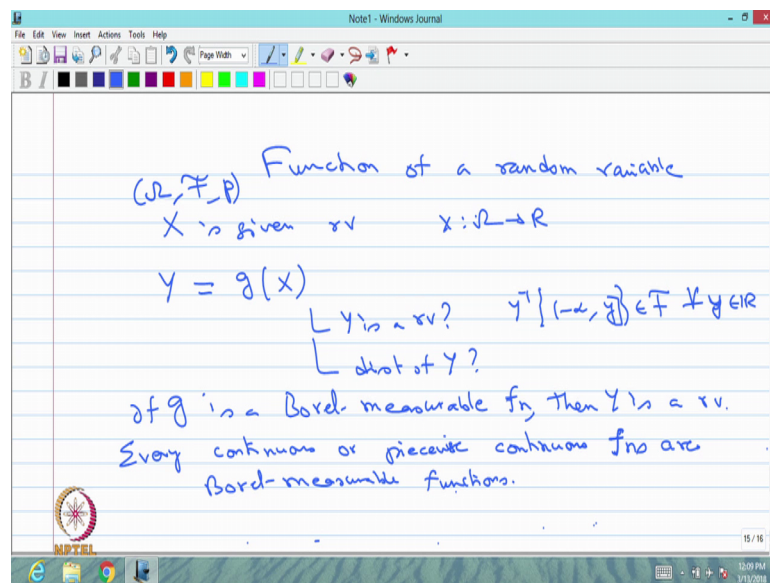 Note1 - Windows Journal
File Edit View Insert Actions Tools Help
Page Width
B I
Function of a random variable
(Ω, F, P)
X is given rv X : Ω → R
Y = g(X)
Y is a rv? Y⁻¹{(-∞, y]} ∈ F ∀ y ∈ IR
dist of Y?
If g is a Borel-measurable fn, then Y is a rv.
Every continuous or piecewise continuous fns are
Borel-measurable functions.
NPTEL
15 / 16
12:09 PM